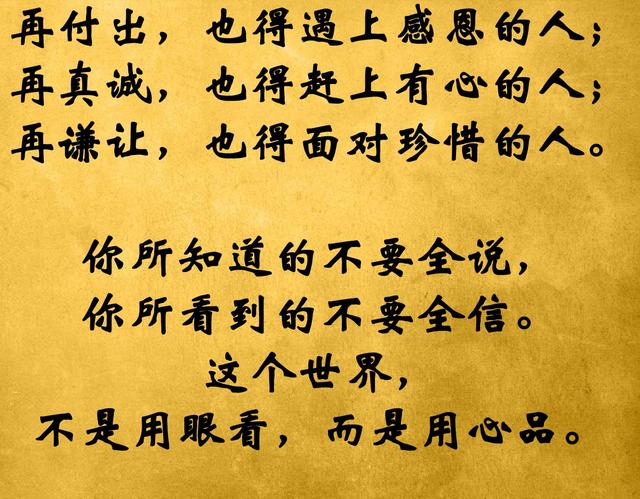 再付出，也得遇上感恩的人；
再真诚，也得赶上有心的人；
再谦让，也得面对珍惜的人。
你所知道的不要全说，
你所看到的不要全信。
这个世界，
不是用眼看，而是用心品。